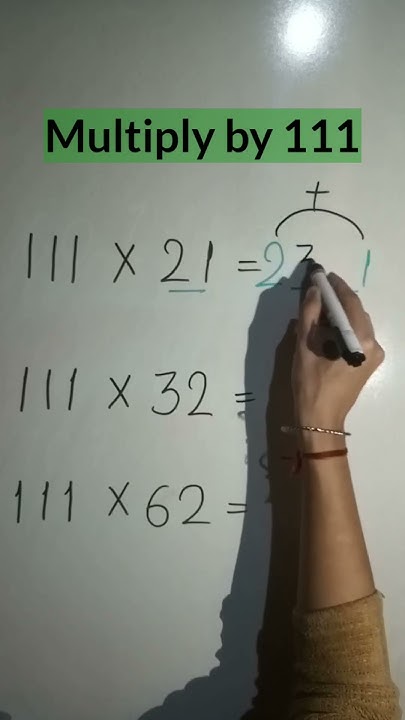 Multiply by 111
+
111 × 21 = 23 1
111 × 32 =
111 × 62 =